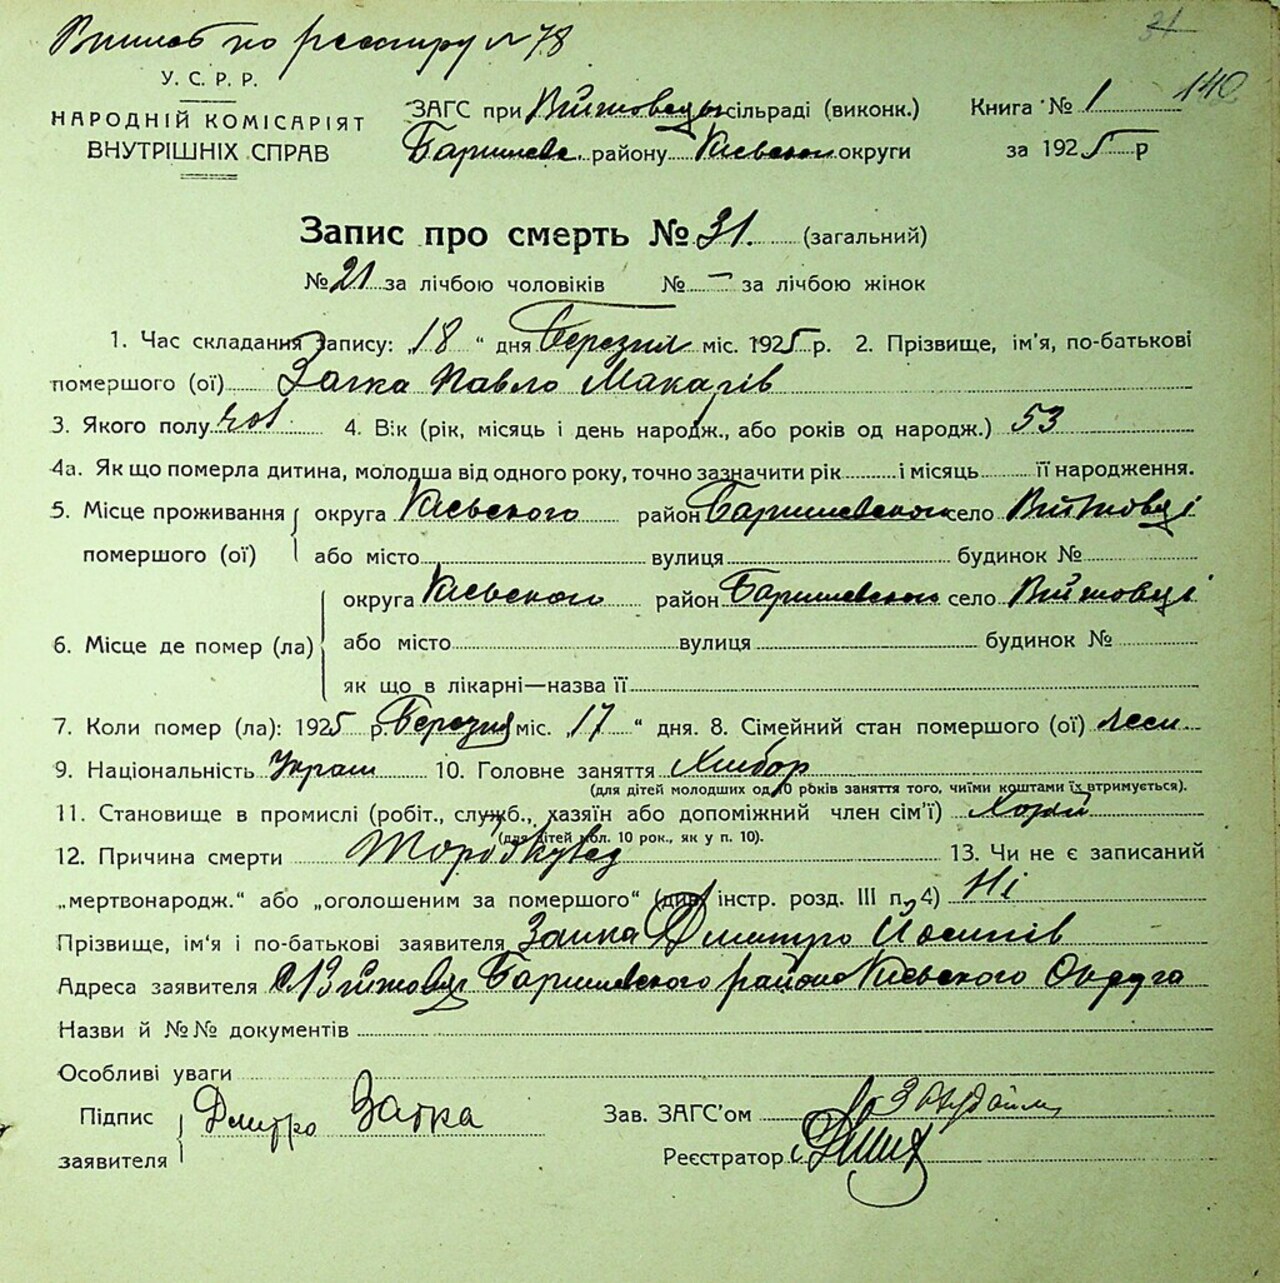 по реєстру № 78
31
У. С. Р. Р.
НАРОДНІЙ КОМІСАРІЯТ
ВНУТРІШНІХ СПРАВ
ЗАГС при сільраді (виконк.)
Баришевс. району Київського округи
Книга № 1 140
за 1925 р
Запис про смерть № 31. (загальний)
№ 21 за лічбою чоловіків № — за лічбою жінок
1. Час складання запису: „18“ дня Березня міс. 1925 р. 2. Прізвище, ім'я, по-батькові
помершого (ої) Заїка Павло Макарів
3. Якого полу чол 4. Вік (рік, місяць і день народж., або років од народж.) 53
4а. Як що померла дитина, молодша від одного року, точно зазначити рік і місяць її народження.
5. Місце проживання помершого (ої)
округа Київського район Баришевського село Війтовці
або місто вулиця будинок №
6. Місце де помер (ла)
округа Київського район Баришевського село Війтовці
або місто вулиця будинок №
як що в лікарні—назва її
7. Коли помер (ла): 1925 р. Березня міс. „17“ дня. 8. Сімейний стан помершого (ої)
9. Національність Україн 10. Головне заняття Хлібор
(для дітей молодших од 10 років заняття того, чиїми коштами їх втримується).
11. Становище в промислі (робіт., служб., хазяїн або допоміжний член сім'ї)
(для дітей мол. 10 рок., як у п. 10).
12. Причина смерти 13. Чи не є записаний
„мертвонародж.“ або „оголошеним за помершого“ (див. інстр. розд. III п. 4) Ні
Прізвище, ім'я і по-батькові заявителя Заїка Дмитро Йосипів
Адреса заявителя с. Війтовці Баришевського району Київського Округа
Назви й №№ документів
Особливі уваги
Підпис заявителя Дмитро Заїка
Зав. ЗАГС'ом
Реєстратор